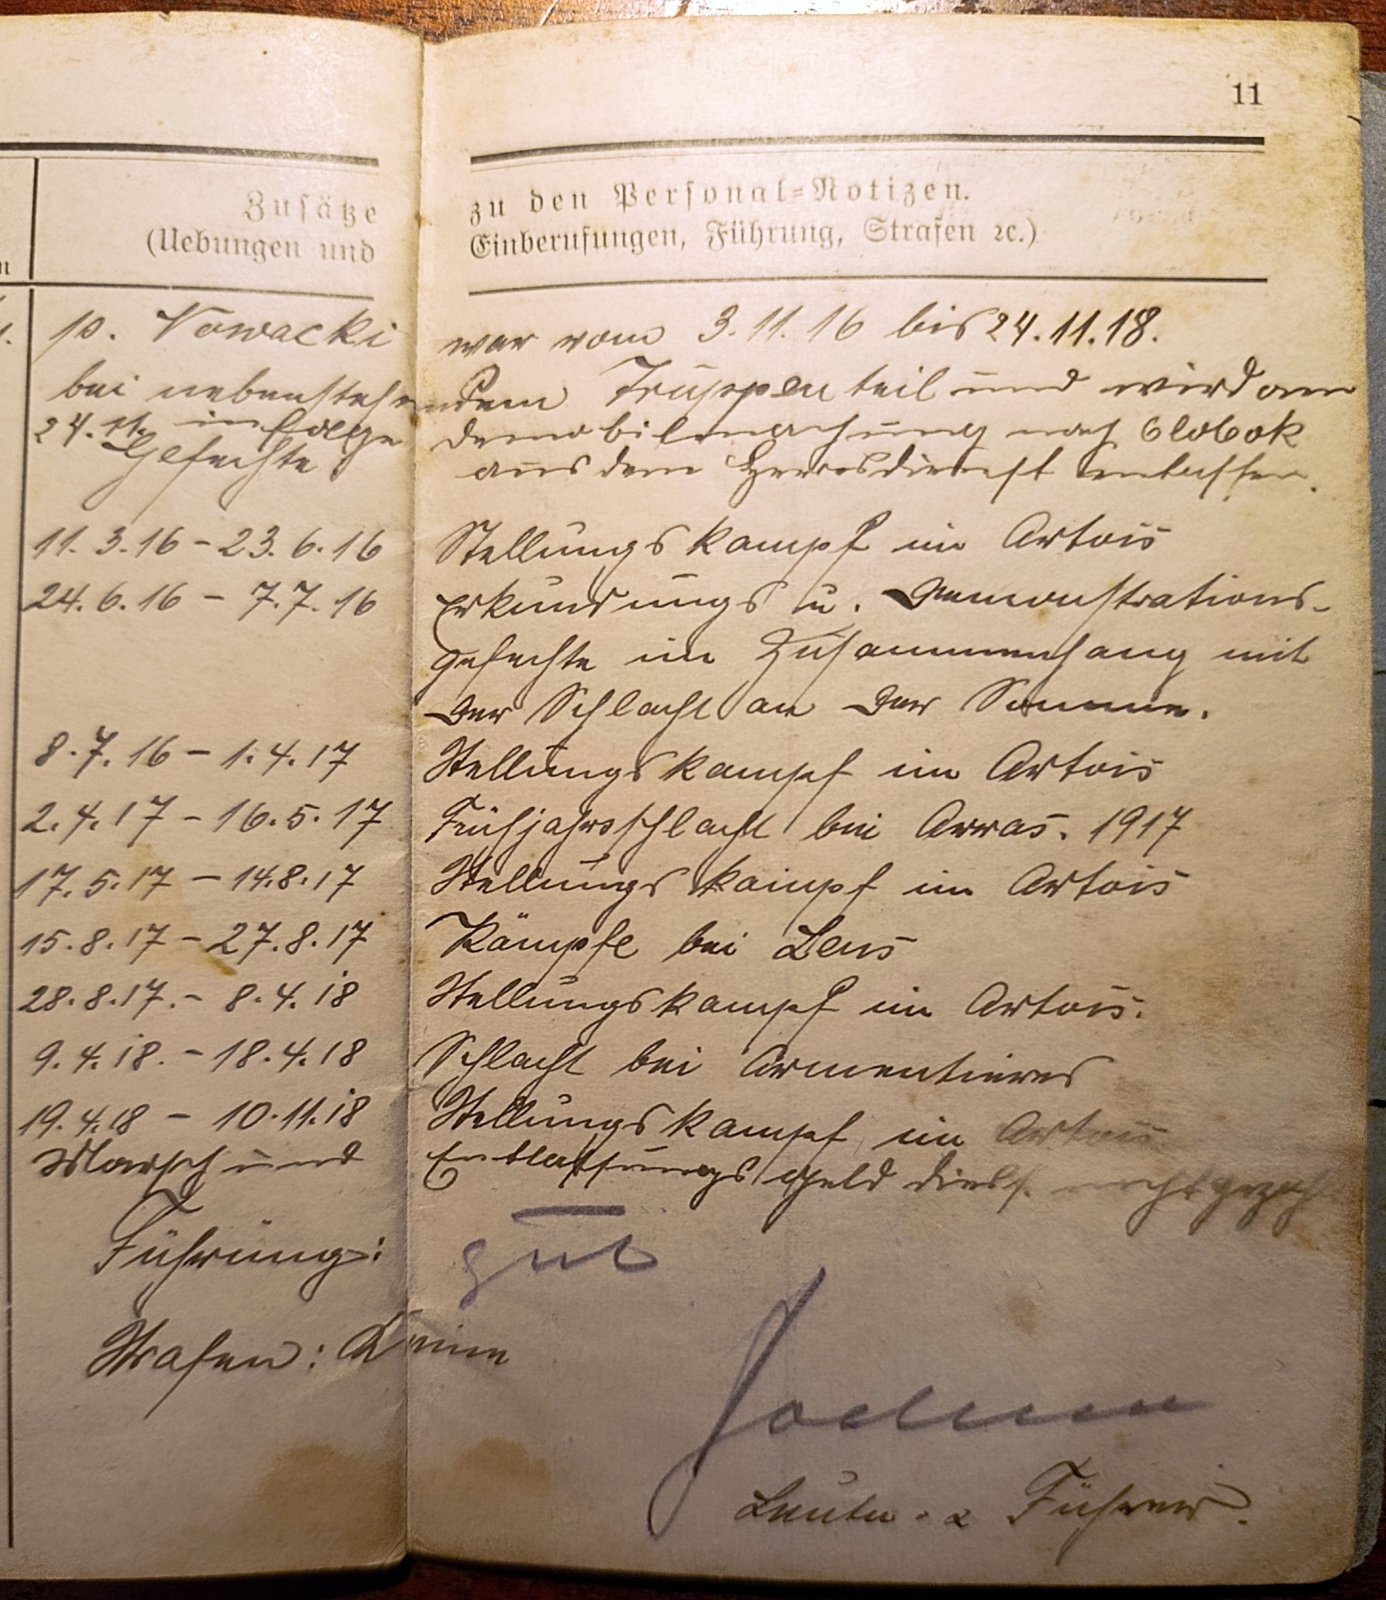 11
Zusätze zu den Personal-Notizen.
(Uebungen und Einberufungen, Führung, Strafen ꝛc.)
p. Nowacki war vom 3.11.16 bis 24.11.18.
bei nebenstehendem Truppenteil und wird am
24.11. infolge Demobilmachung nach
aus dem Heeresdienst entlassen.
Gefechte
11.3.16 - 23.6.16 Stellungskampf im Artois
24.6.16 - 7.7.16 Erkundungs u. Demonstrations-
gefechte im Zusammenhang mit
der Schlacht an der Somme.
8.7.16 - 1.4.17 Stellungskampf im Artois
2.4.17 - 16.5.17 Frühjahrsschlacht bei Arras. 1917
17.5.17 - 14.8.17 Stellungskampf im Artois
15.8.17 - 27.8.17 Kämpfe bei Lens
28.8.17. - 8.4.18 Stellungskampf im Artois.
9.4.18. - 18.4.18 Schlacht bei Armentieres
19.4.18 - 10.11.18 Stellungskampf im Artois
Marsch und Entlassungsgeld
Führung: gut
Strafen: Keine
Leutn. u. Führer.